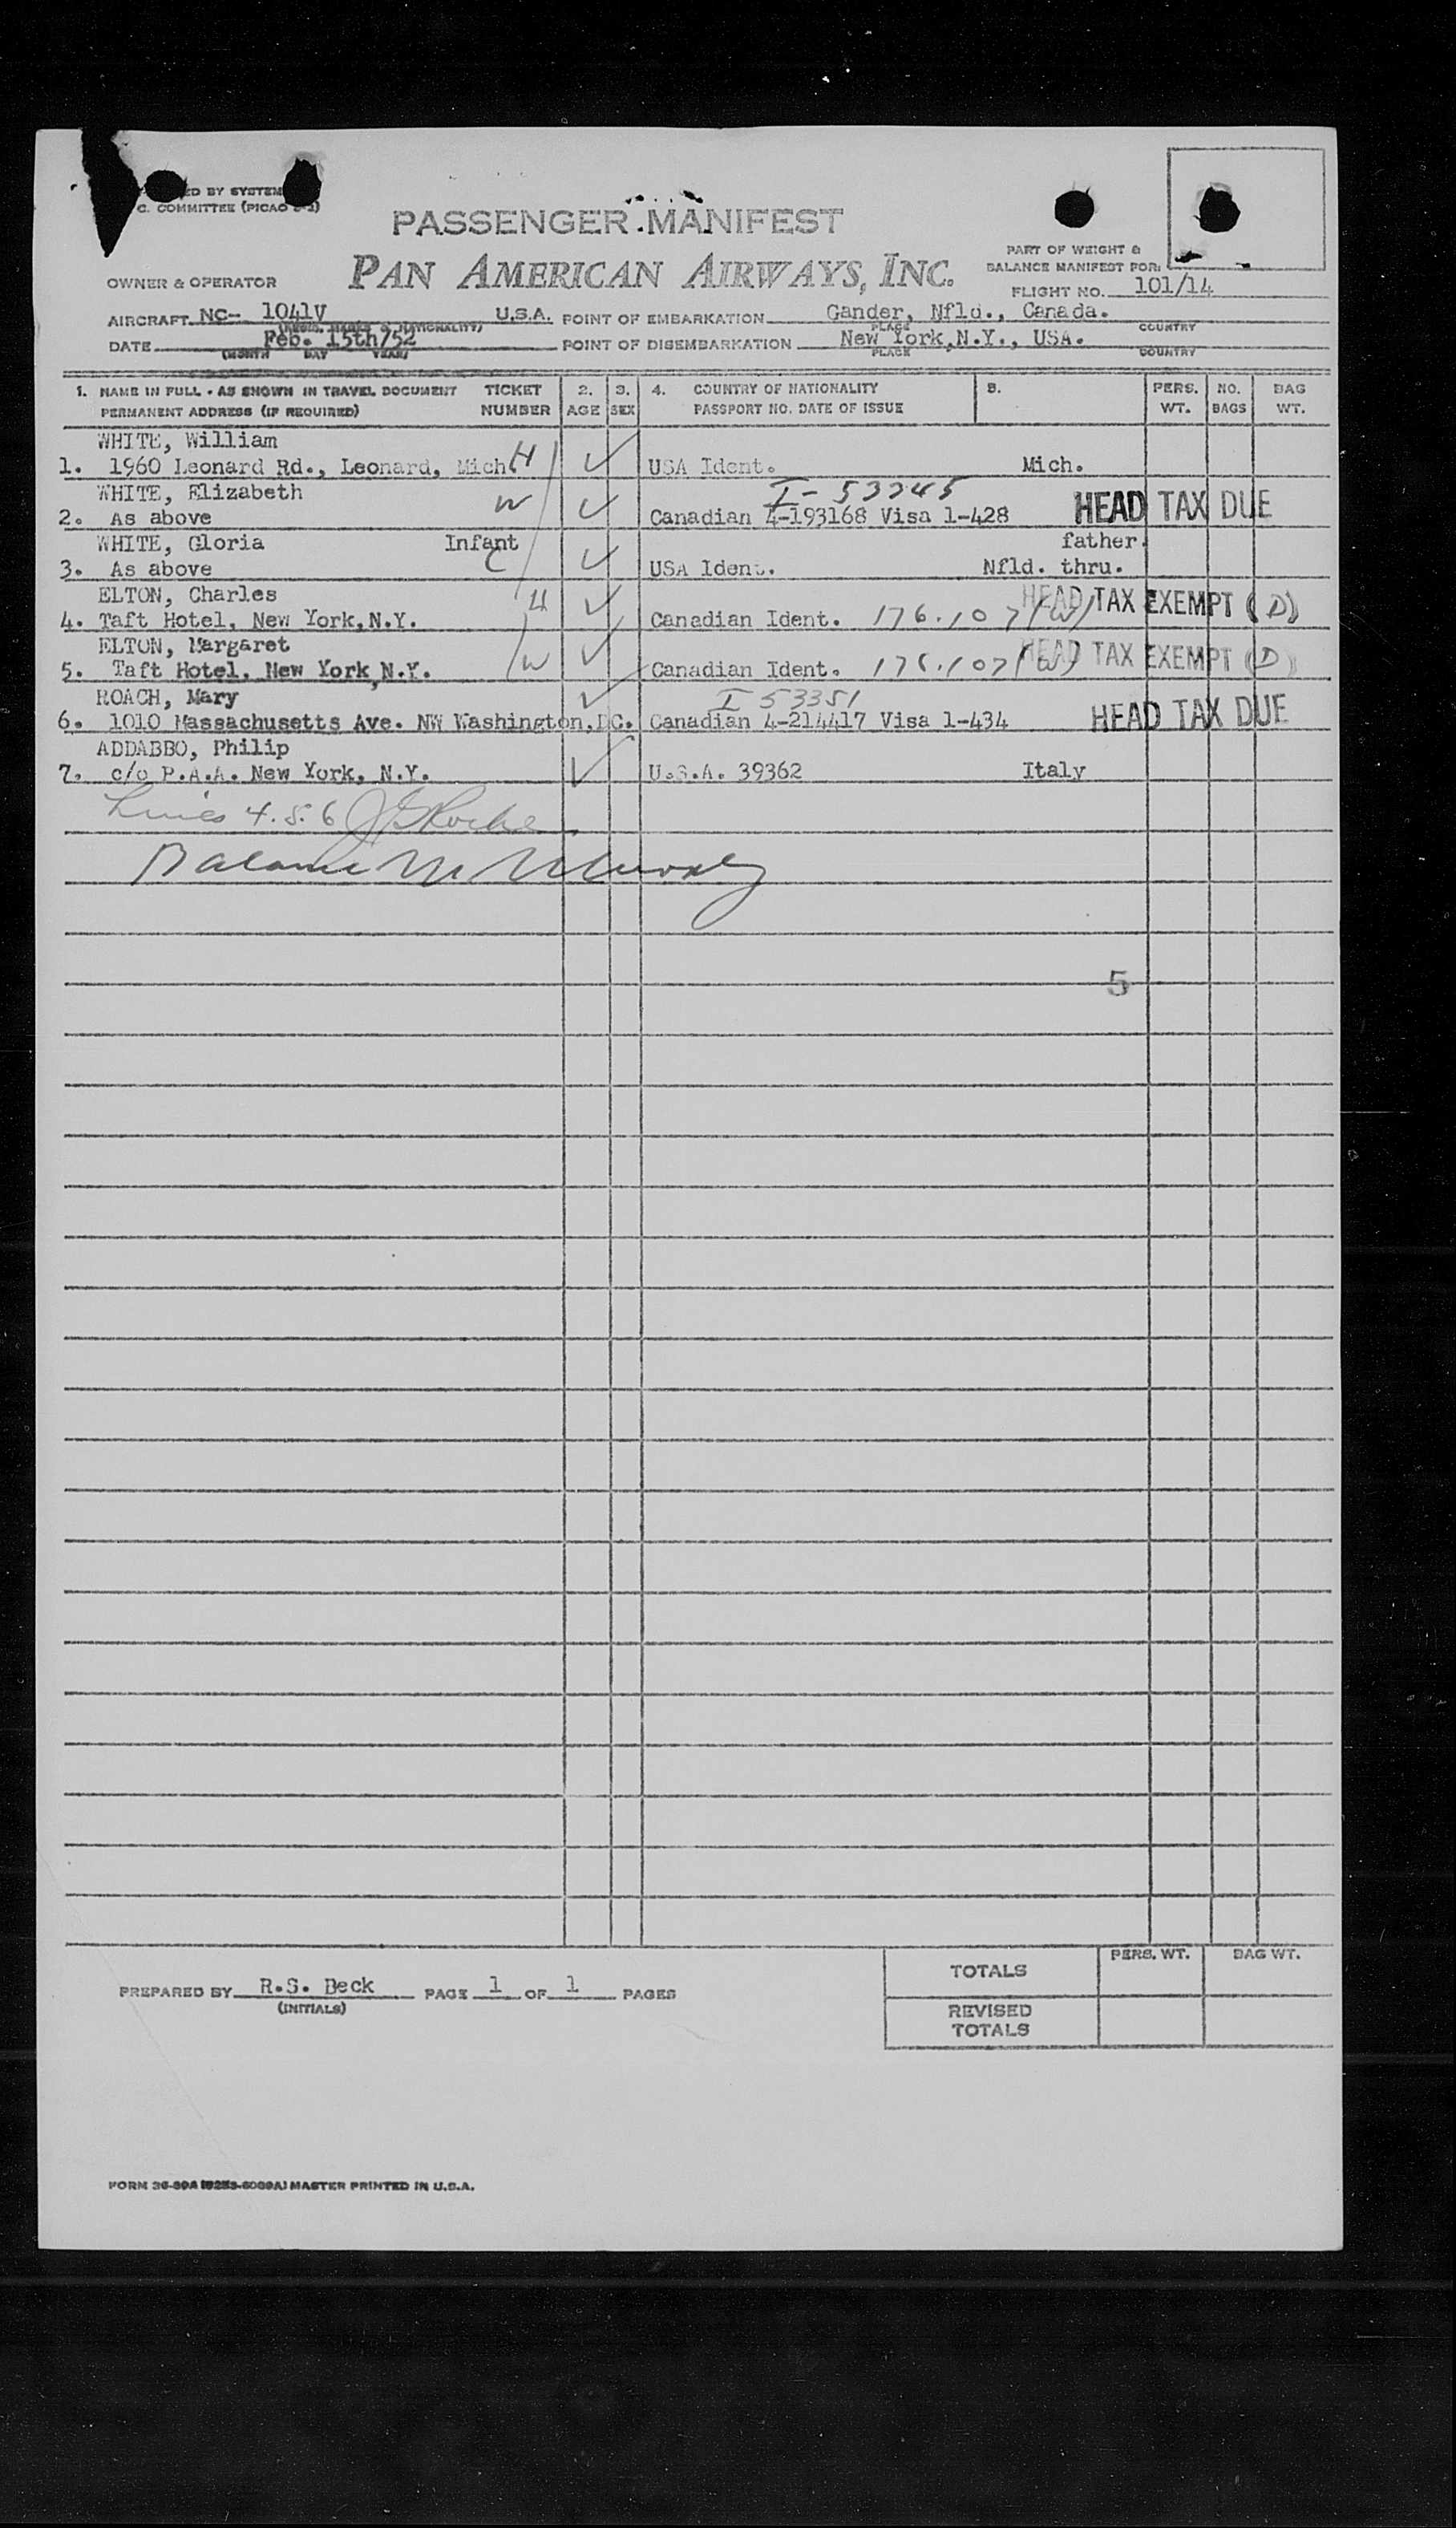 ED BY SYSTEM
C. COMMITTEE (PICAO
PASSENGER MANIFEST
PART OF WEIGHT &
BALANCE MANIFEST FOR:
OWNER & OPERATOR PAN AMERICAN AIRWAYS, INC.
FLIGHT NO. 101/14
AIRCRAFT NC- 1041V U.S.A. POINT OF EMBARKATION Gander, Nfld., Canada.
(REGIS. MARKS & NATIONALITY) PLACE COUNTRY
DATE Feb. 15th/52 POINT OF DISEMBARKATION New York,N.Y., USA.
(MONTH DAY YEAR) PLACE COUNTRY
1. NAME IN FULL - AS SHOWN IN TRAVEL DOCUMENT TICKET 2. 3. 4. COUNTRY OF NATIONALITY 5. PERS. NO. BAG
PERMANENT ADDRESS (IF REQUIRED) NUMBER AGE SEX PASSPORT NO. DATE OF ISSUE WT. BAGS WT.
WHITE, William
1. 1960 Leonard Rd., Leonard, Mich. H ✓ USA Ident. Mich.
WHITE, Elizabeth W ✓ I-53345 HEAD TAX DUE
2. As above Canadian 4-193168 Visa 1-428
WHITE, Gloria Infant father.
3. As above C ✓ USA Ident. Nfld. thru.
ELTON, Charles H ✓ HEAD TAX EXEMPT (D)
4. Taft Hotel, New York,N.Y. Canadian Ident. 176.107(W)
ELTON, Margaret W ✓ HEAD TAX EXEMPT (D)
5. Taft Hotel, New York,N.Y. Canadian Ident. 176.107(W)
ROACH, Mary ✓ I 53351
6. 1010 Massachusetts Ave. NW Washington,DC. Canadian 4-214417 Visa 1-434 HEAD TAX DUE
ADDABBO, Philip
7. c/o P.A.A. New York, N.Y. ✓ U.S.A. 39362 Italy
Lines 4.5.6 J G Roche
Balance
5
TOTALS PERS. WT. BAG WT.
PREPARED BY R.S. Beck PAGE 1 OF 1 PAGES
(INITIALS)
REVISED
TOTALS
MASTER PRINTED IN U.S.A.